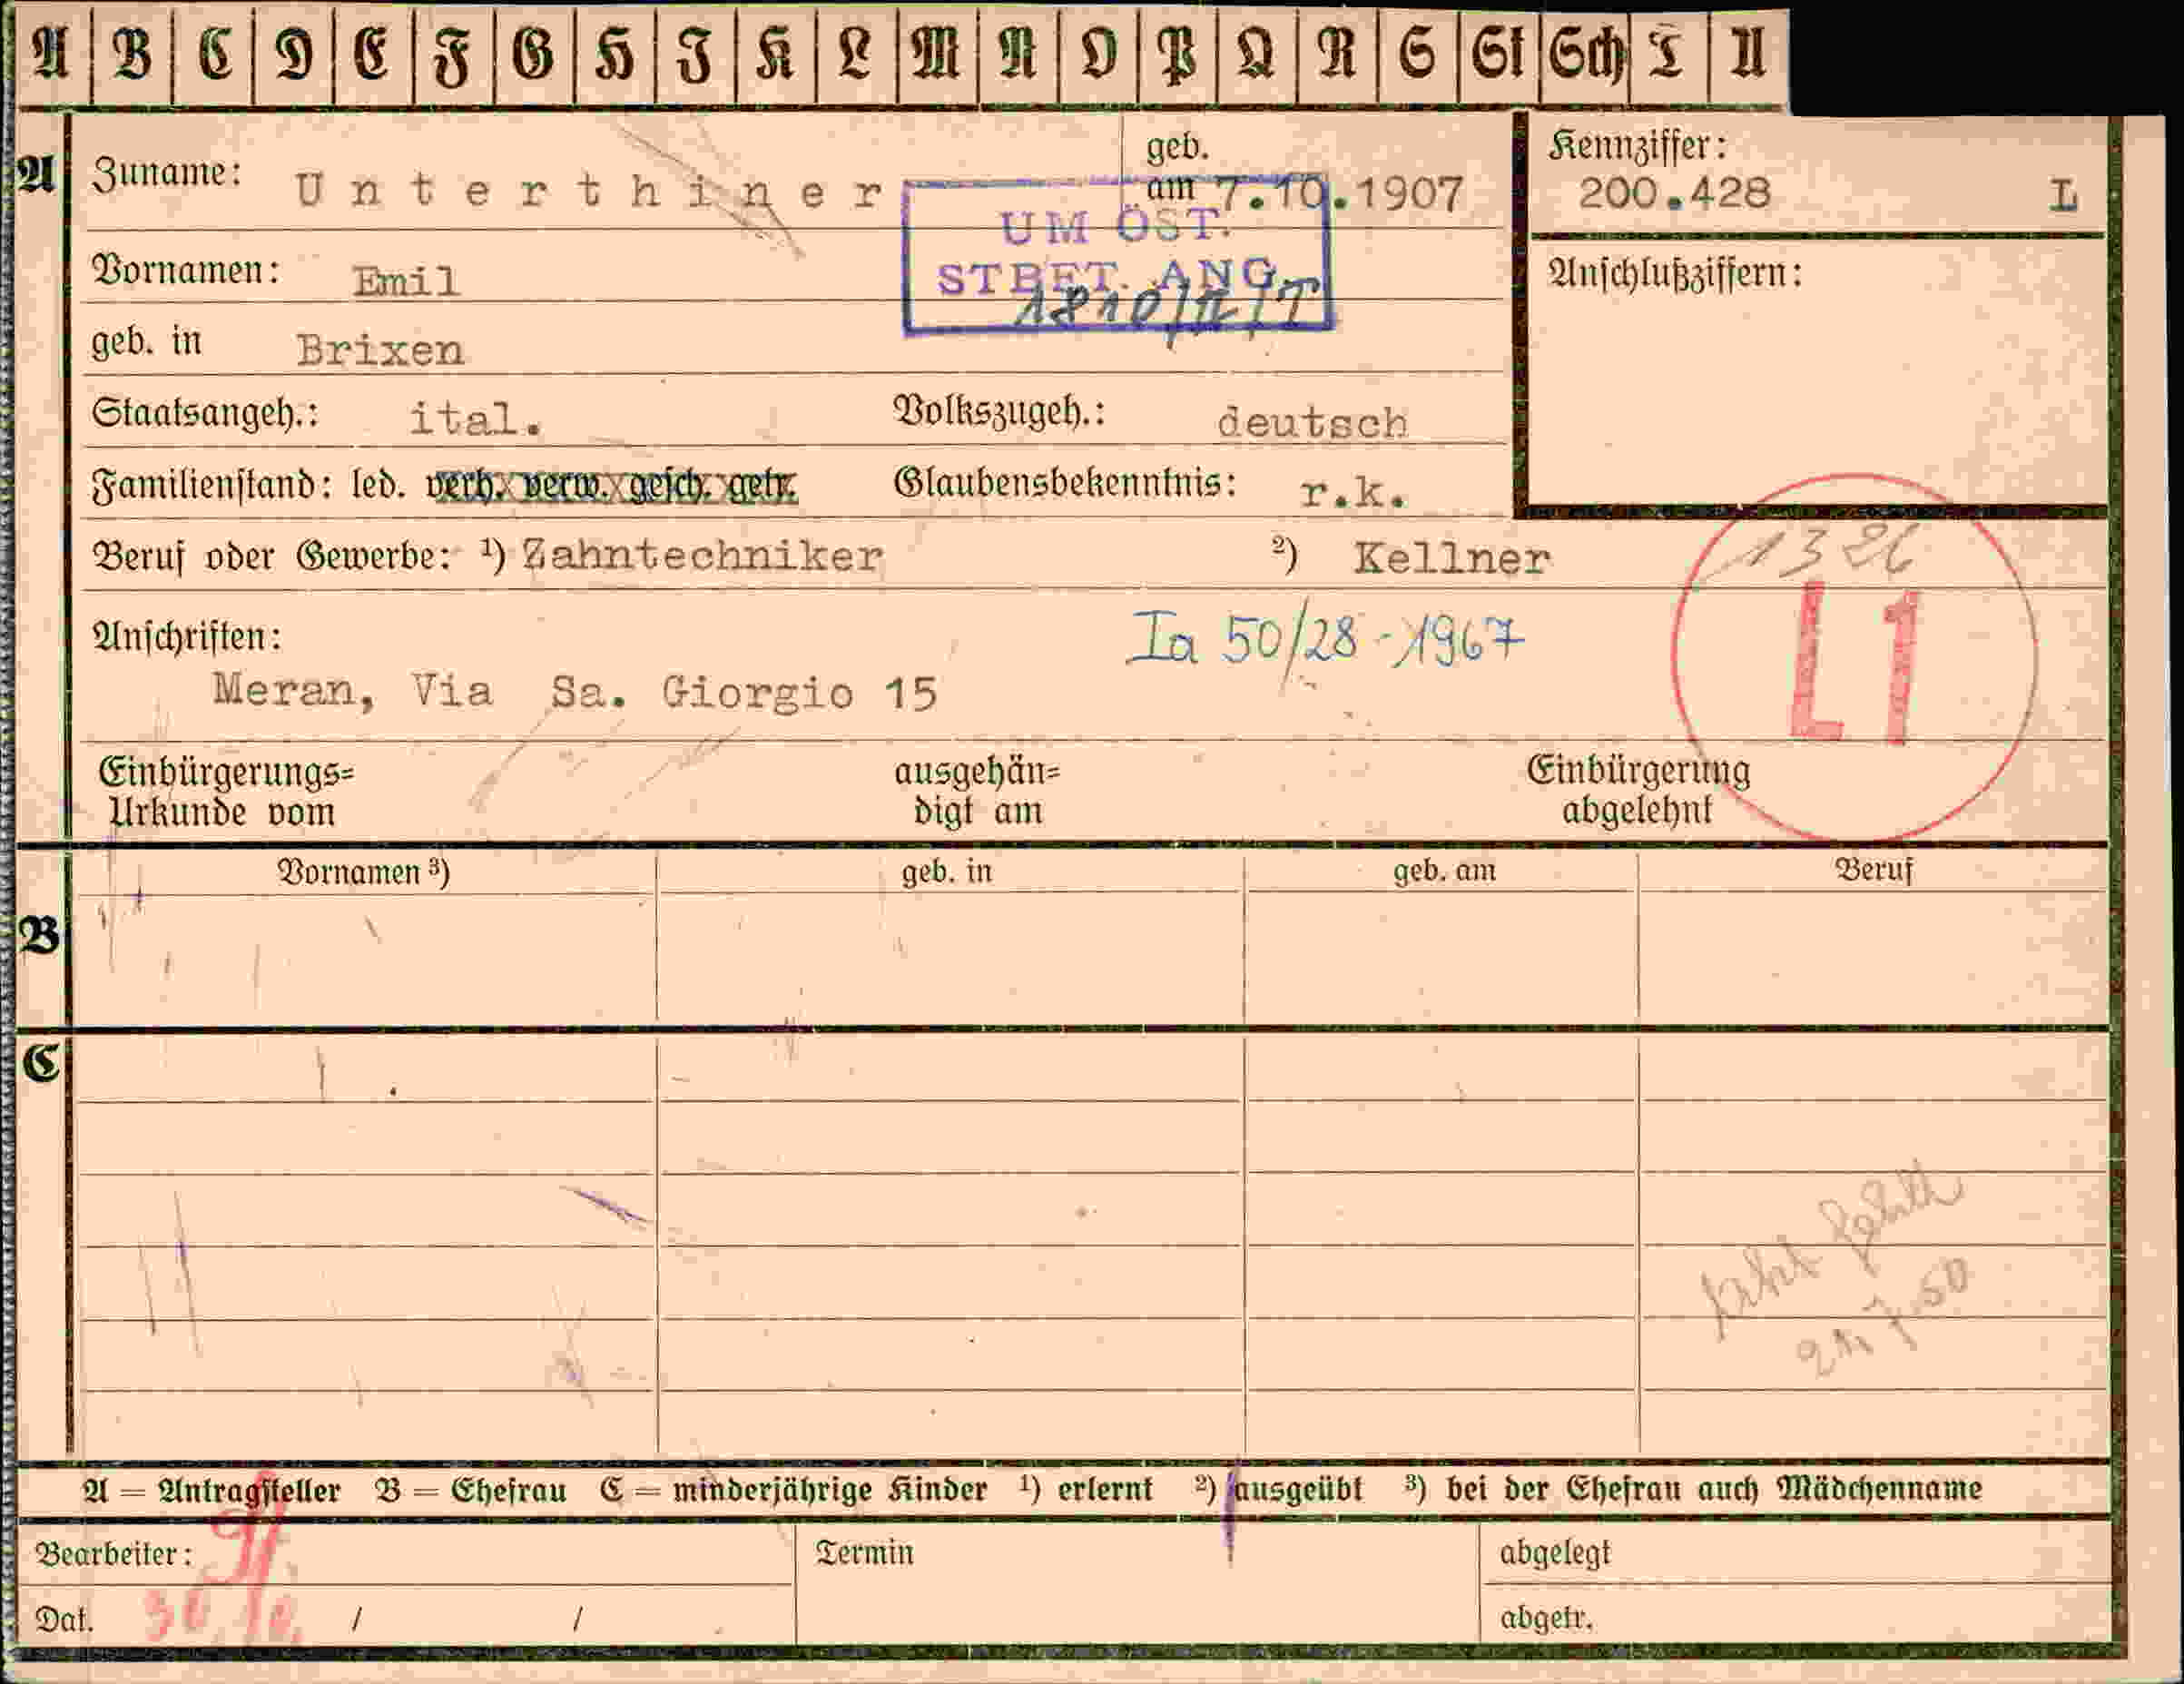 A B C D E F G H J K L M N O P Q R S St Sch T U
A Zuname: Unterthiner geb. am 7.10.1907 Kennziffer: 200.428 L
UM ÖST.
STBET. ANG.
1810/II/T
Vornamen: Emil Anschlußziffern:
geb. in Brixen
Staatsangeh.: ital. Volkszugeh.: deutsch
Familienstand: led. verh. verw. gesch. getr. Glaubensbekenntnis: r.k.
Beruf oder Gewerbe: ¹) Zahntechniker ²) Kellner
1326
L1
Anschriften: Ia 50/28-1967
Meran, Via Sa. Giorgio 15
Einbürgerungs= ausgehän= Einbürgerung
Urkunde vom digt am abgelehnt
Vornamen ³) geb. in geb. am Beruf
B
C
A = Antragsteller B = Ehefrau C = minderjährige Kinder ¹) erlernt ²) ausgeübt ³) bei der Ehefrau auch Mädchenname
Bearbeiter: Termin abgelegt
Dat. / / abgetr.